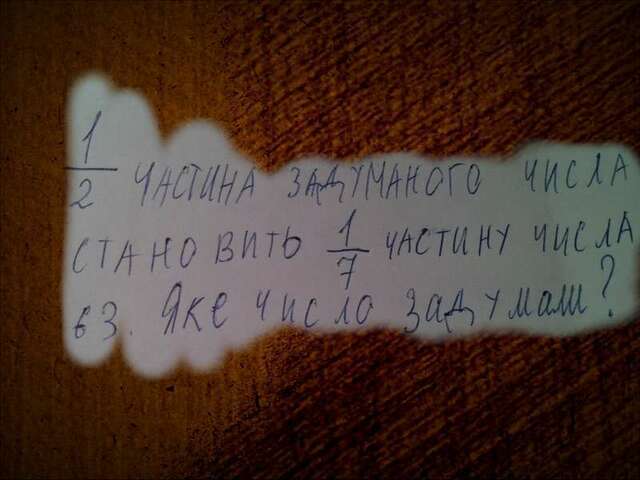 1/2 ЧАСТИНА ЗАДУМАНОГО ЧИСЛА
СТАНОВИТЬ 1/7 ЧАСТИНУ ЧИСЛА
63. Яке число задумали?